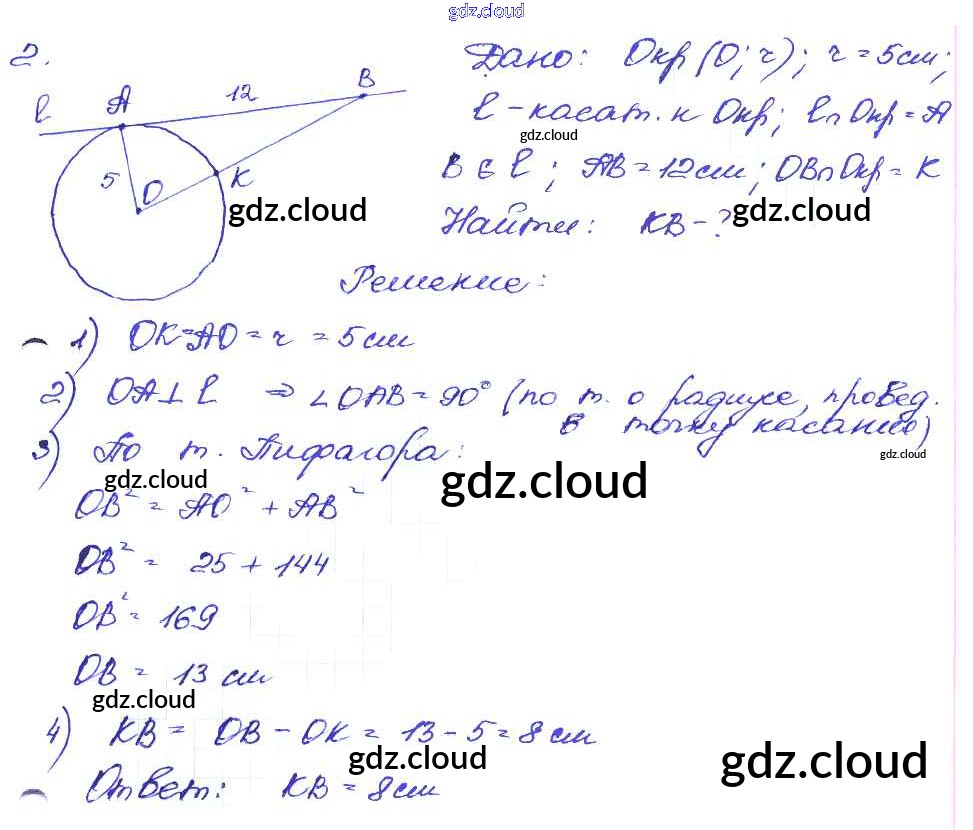 gdz.cloud
2.
Дано: Окр (O; r); r = 5 см;
l A 12 B
l - касат. к Окр; l∩Окр = A
gdz.cloud
B ∈ l; AB = 12 см; OB∩Окр = K
5 O K
gdz.cloud gdz.cloud
Найти: KB - ?
Решение:
1) OK = AO = r = 5 см
2) OA ⊥ l ⇒ ∠OAB = 90° (по т. о радиусе, провед.
в точку касания)
3) По т. Пифагора:
gdz.cloud
gdz.cloud gdz.cloud
OB² = AO² + AB²
OB² = 25 + 144
OB² = 169
OB = 13 см
gdz.cloud
4) KB = OB - OK = 13 - 5 = 8 см
gdz.cloud gdz.cloud
Ответ: KB = 8 см